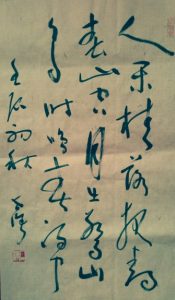 人闲桂花落夜静
春山空月出惊山
鸟时鸣春涧中
壬辰初秋